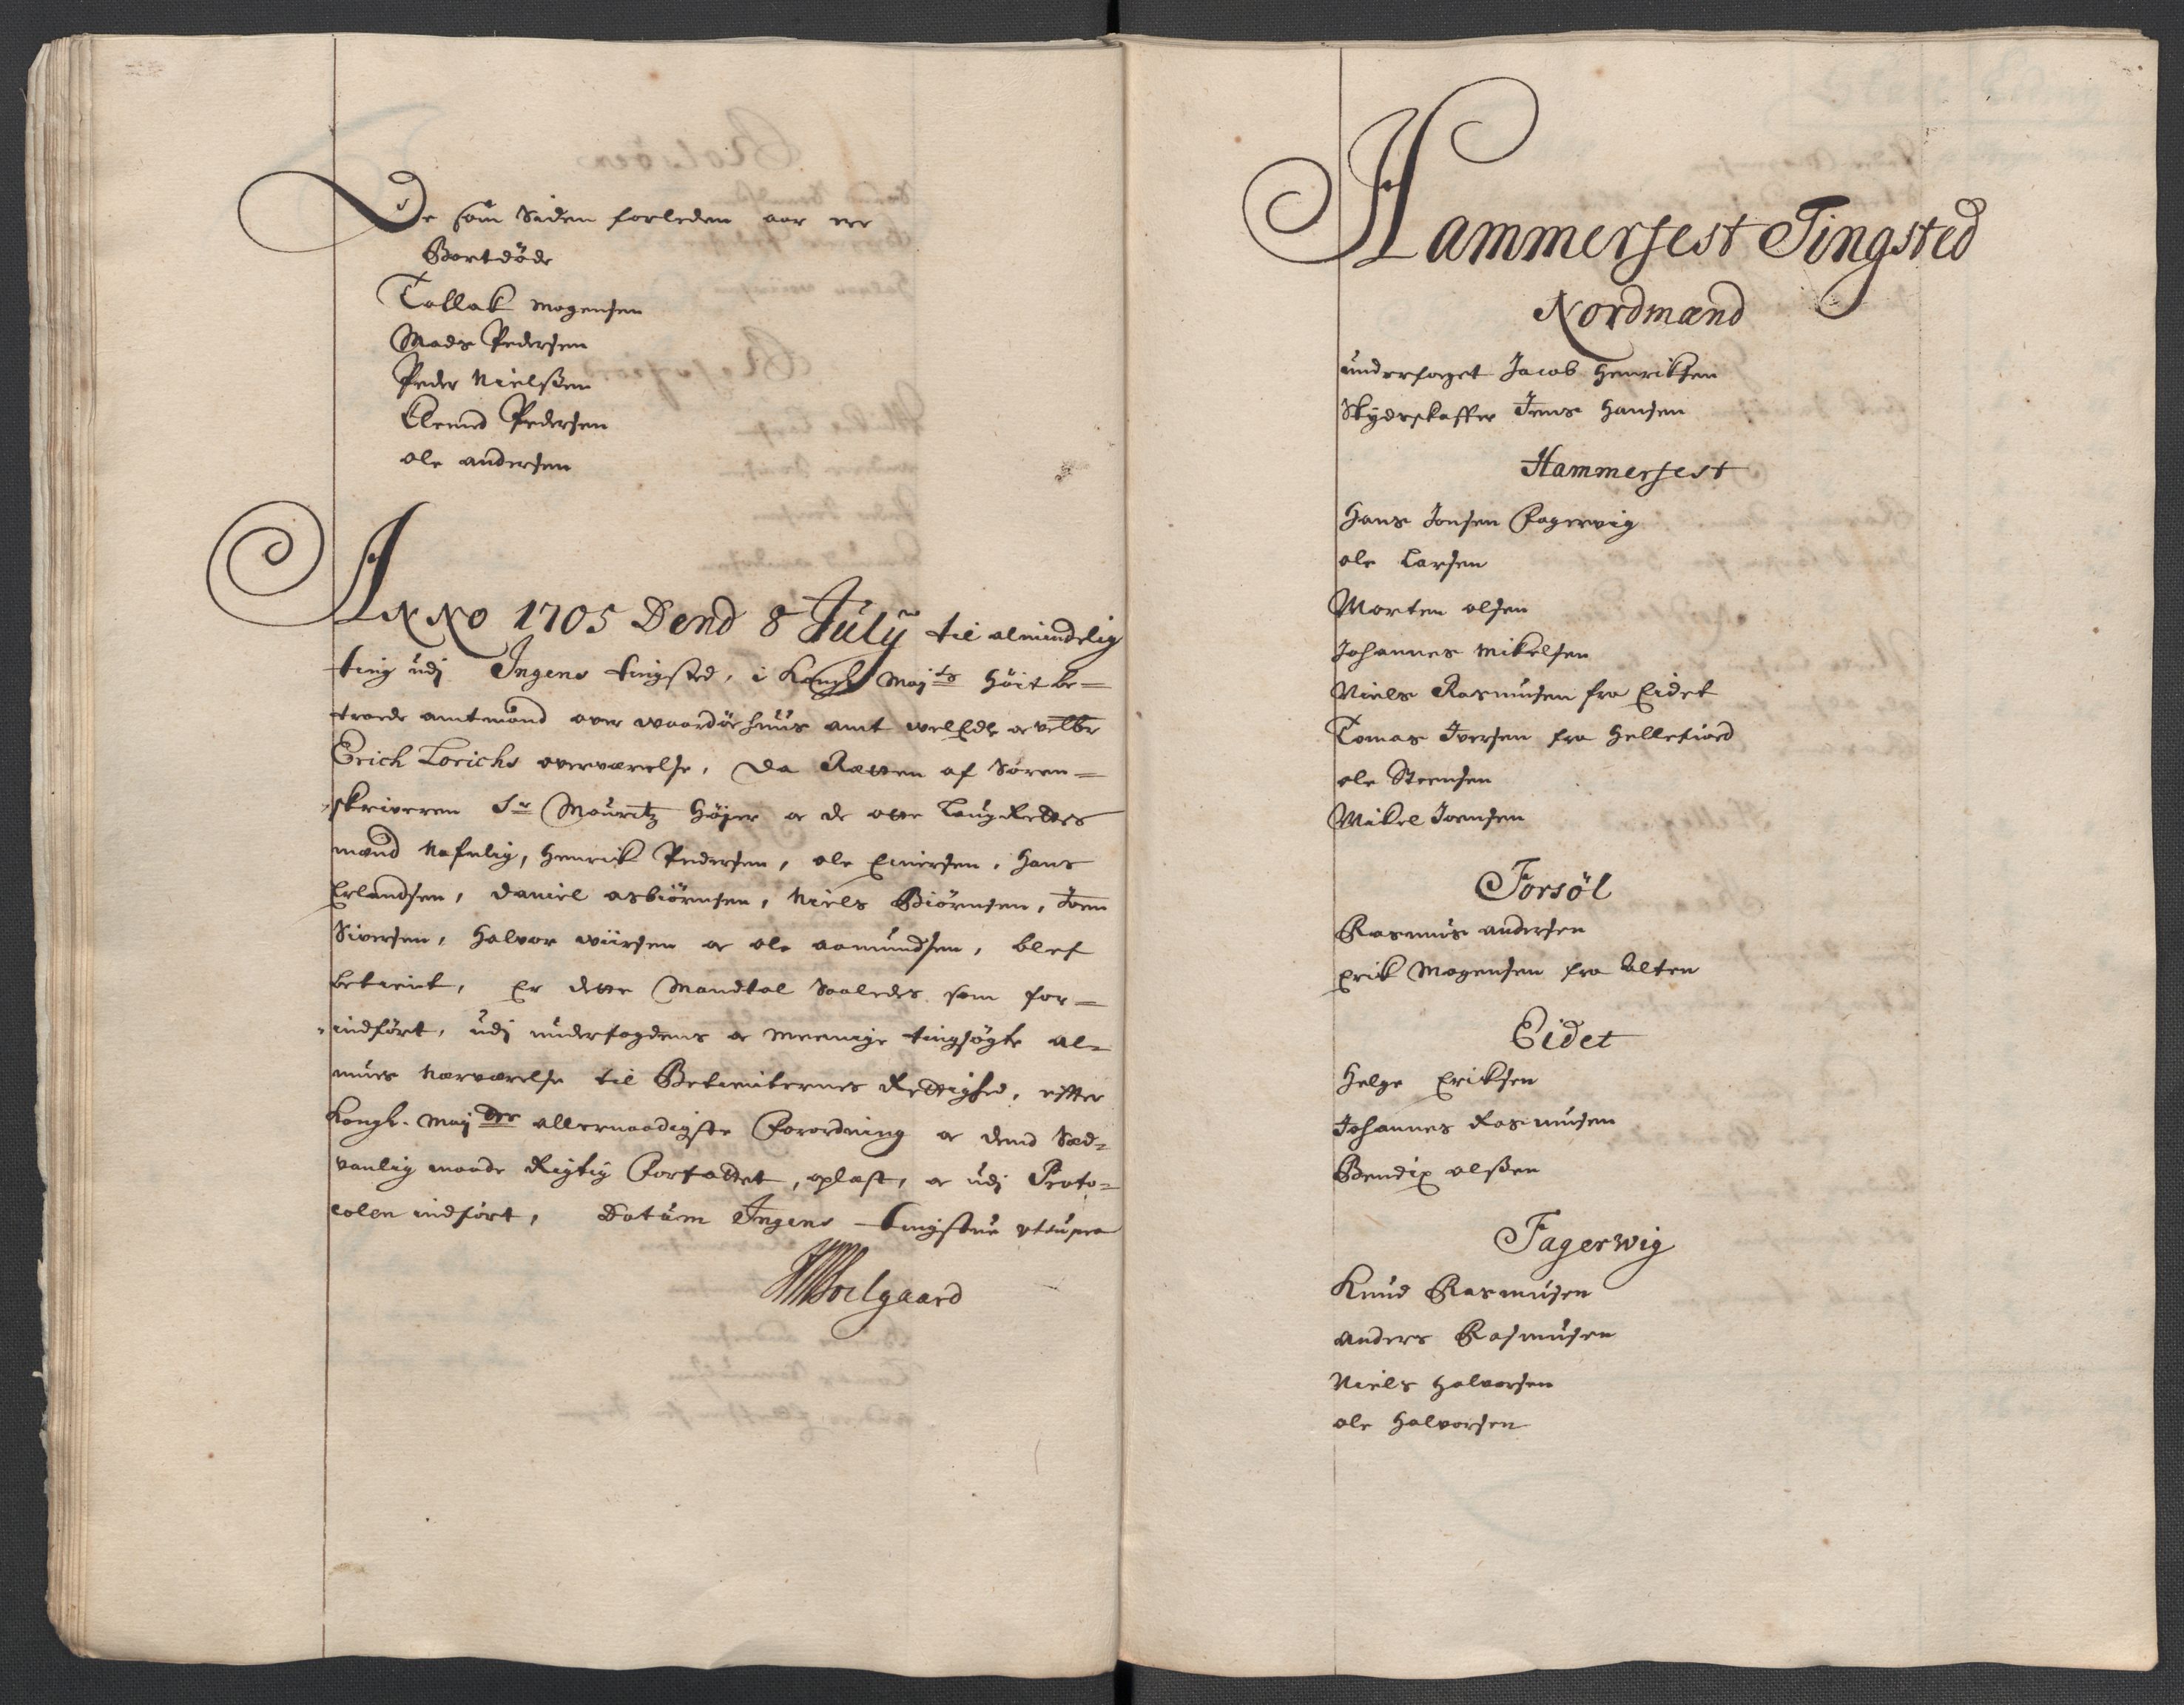 De som Siden forleden aar ere
Bortdöde
Tollak Mogensen
Mads Pedersen
Peder Nielssen
Elend Pedersen
ole andersen
ANNO 1705 Dend 8 July til almindelig
ting udj Ingens tingsted, i Kongl Maj ts Höit be=
troede amtmand over Waardöehuus amt welEdl: og velbr
Erich Lorichs overværelse, da Retten af Soren=
skriveren Sr Mouritz Höyer og de otte LaugRettes
mænd Nafnlig, Henrik Pedersen, ole Einersen, Hans
Erlandsen, Daniel asbiörnsen, Niels Biörnsen, Joen
Siversen, Halvor og ole aamundsen, blef
betient, Er dette Mandtal Saaledes som for=
indfört, udj underfogdens og Meenige tingsögte al=
mues Nærværelse til Betienternes Rettighed, efter
Kongl. Maj ts allernaadigste Forordning og dend Sæd=
vanlig maade Rigtig Forfattet, oplæst, og udj Proto=
collen indfört, Datum Ingens tingstue ut supra
Soelgaard
Hammerfest Tingsted
Nordmænd
underfoget Jacob Henriksen
Skydsskaffer Jens Hansen
Hammerfest
Hans Jonsen Fagervig
ole Larsen
Morten olsen
Johannes Mikelsen
Niels Rasmusen fra Eidet
Tomas Iversen fra Hellefiord
ole Steensen
Mikel Joensen
Forsöl
Rasmus andersen
Erik Mogensen fra Alten
Eidet
Helge Eriksen
Johannes Rasmusen
Bendix olssen
Fagerwig
Knud Rasmusen
anders Rasmusen
Niels Halvorsen
ole Halvorsen